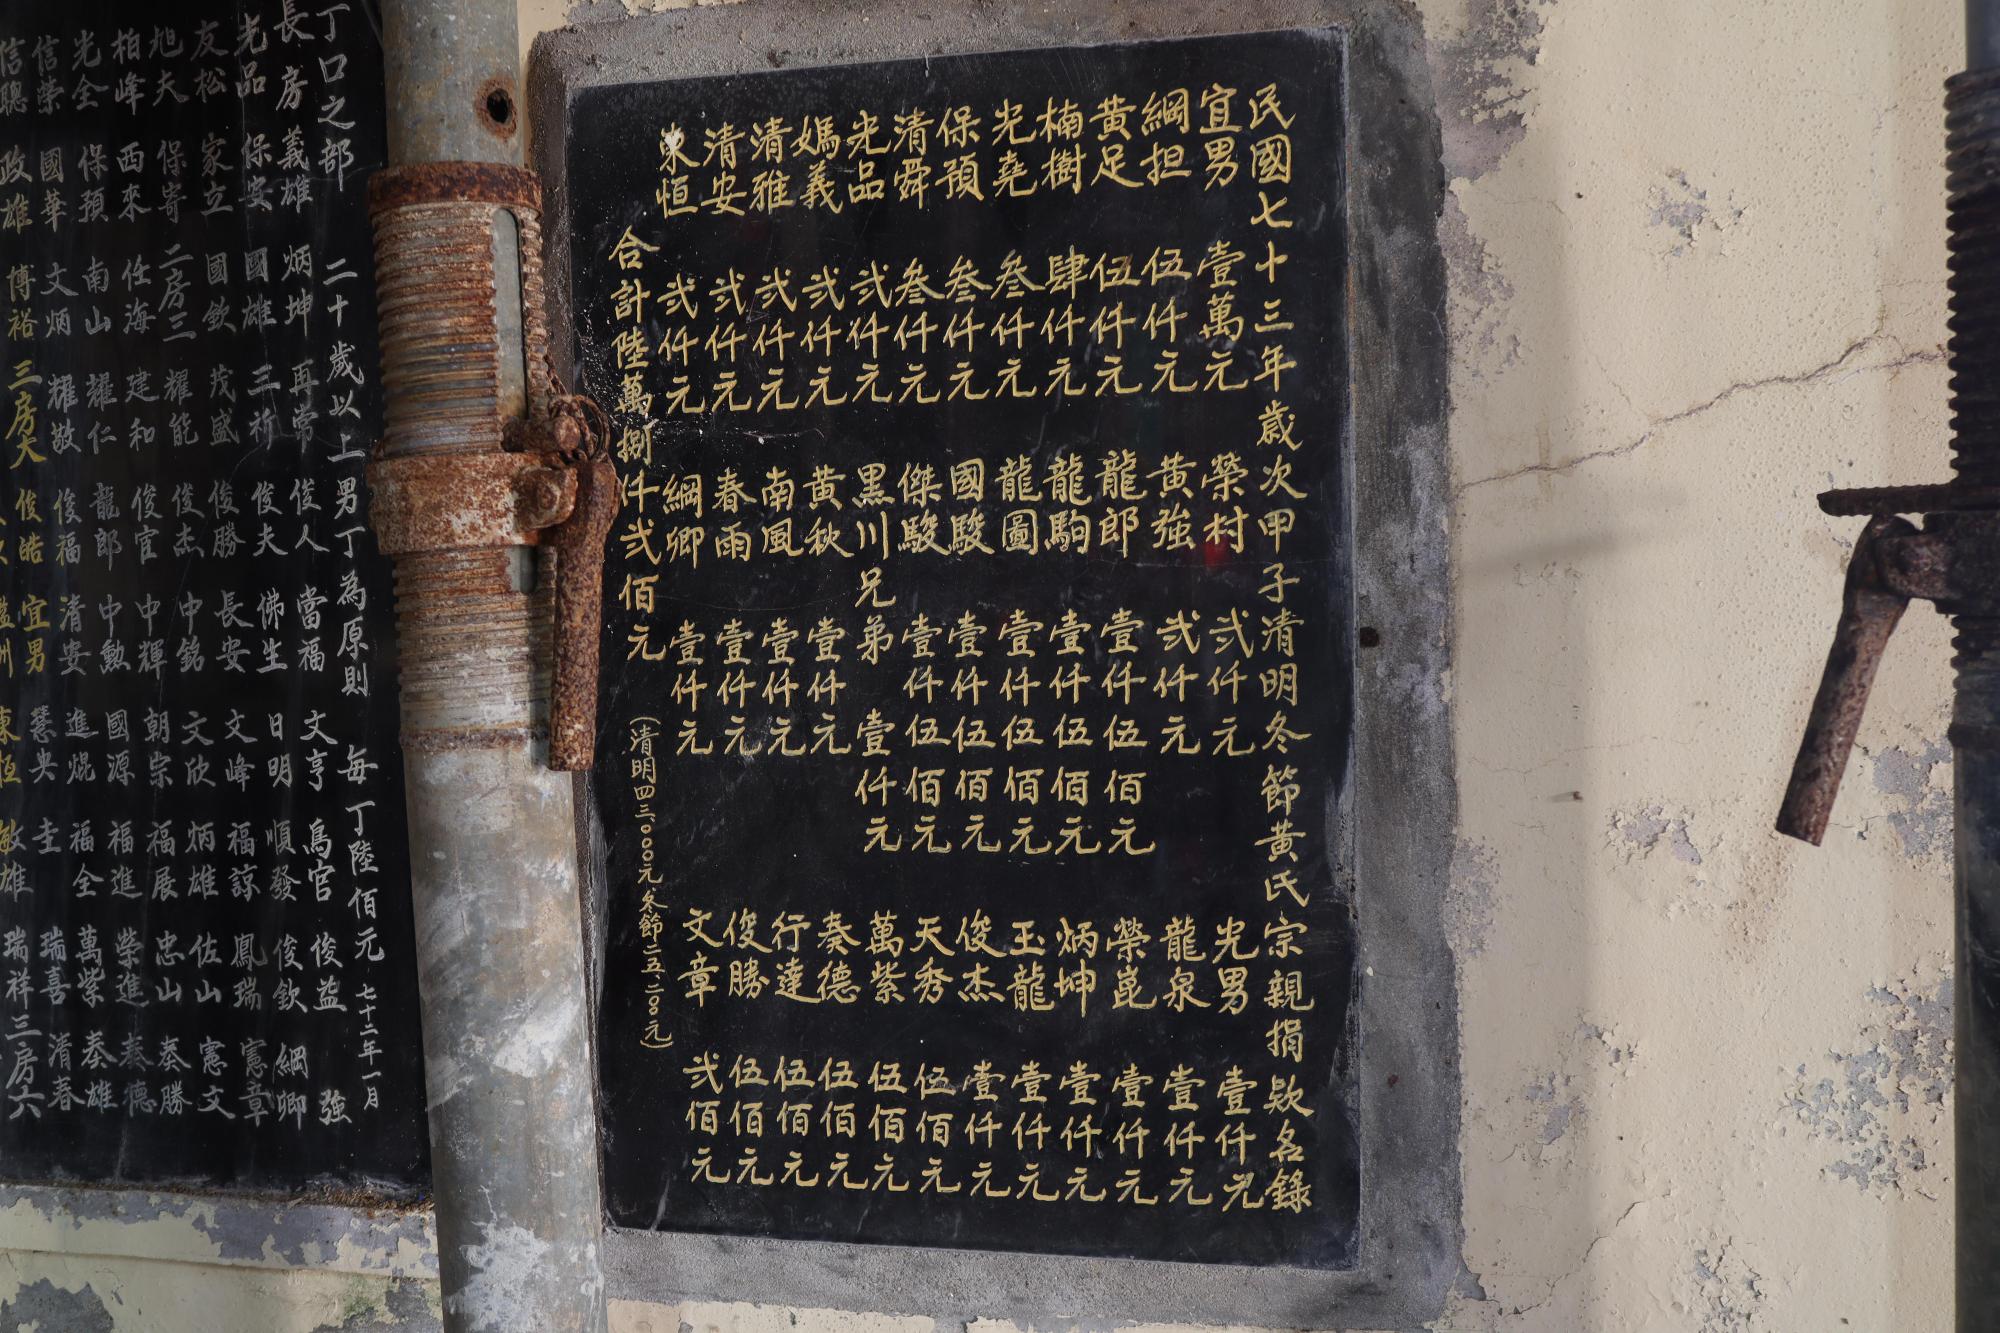 民國七十三年歲次甲子清明冬節黃氏宗親捐欵名錄
宜男 壹萬元 榮村 貳仟元 光男 壹仟元
綱担 伍仟元 黃強 貳仟元 龍泉 壹仟元
黃足 伍仟元 龍郎 壹仟伍佰元 榮崑 壹仟元
楠樹 肆仟元 龍駒 壹仟伍佰元 炳坤 壹仟元
光堯 叁仟元 龍圖 壹仟伍佰元 玉龍 壹仟元
保預 叁仟元 國駿 壹仟伍佰元 俊杰 壹仟元
清舜 叁仟元 傑駿 壹仟伍佰元 天秀 伍佰元
光品 貳仟元 黑川兄弟 壹仟元 萬紫 伍佰元
媽義 貳仟元 黃秋 壹仟元 奏德 伍佰元
清雅 貳仟元 南風 壹仟元 行達 伍佰元
清安 貳仟元 春雨 壹仟元 俊勝 伍佰元
東恒 貳仟元 綱卿 壹仟元 文章 貳佰元
合計陸萬捌仟貳佰元 (清明四三、000元冬節二五、二00元)
丁口之部 二十歲以上男丁為原則 每丁陸佰元 七十二年一月
長房 義雄 炳坤 再常 俊人 當福 文亨 鳥官 俊益 強
光品 保安 國雄 三祈 俊夫 佛生 日明 順發 俊欽 綱卿
友松 家立 國欽 茂盛 俊勝 長安 文峰 福諒 鳳瑞 憲章
旭夫 保寄 二房三 耀能 俊杰 中銘 文欣 炳雄 佐山 憲文
柏峰 西來 任海 建和 俊官 中輝 朝宗 福展 忠山 奏勝
光全 保預 南山 耀仁 龍郎 中勲 國源 福進 榮進 奏德
信榮 國華 文炳 耀敬 俊福 清安 進焜 福全 萬紫 奏雄
信聰 政雄 博裕 三房大 俊皓 宜男 央 圭 瑞喜 清春
東恒 敏雄 瑞祥 三房六